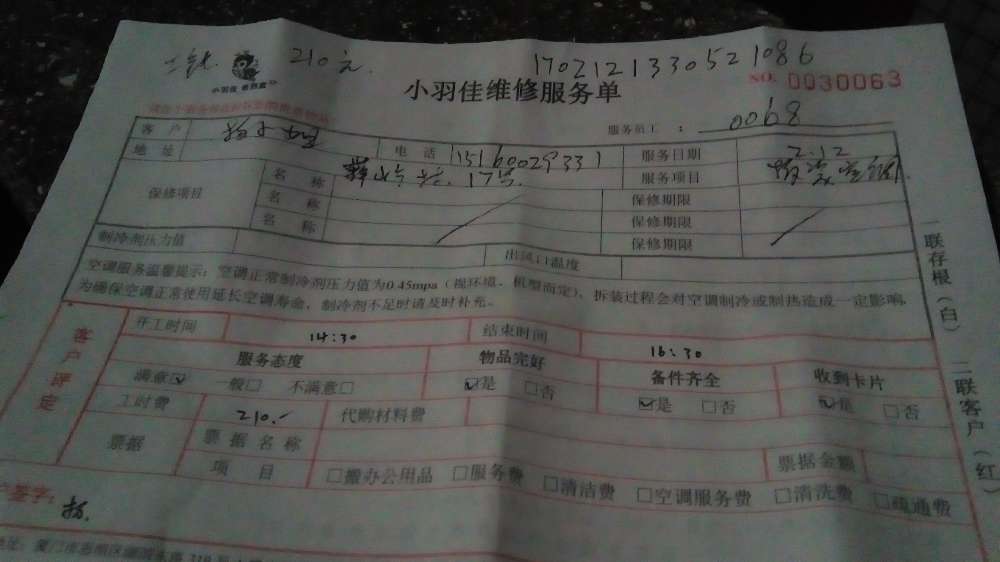 210元. 1702121330521086
小羽佳
小羽佳维修服务单 NO. 0030063
服务员工 : 0068
客 户 电 话 15160029331 服务日期 2.12
地 址 17号. 服务项目
保修项目 名 称 保修期限
名 称 保修期限
名 称 保修期限
制冷剂压力值 出风口温度
空调服务温馨提示:空调正常制冷剂压力值为0.45mpa(视环境、机型而定),拆装过程会对空调制冷或制热造成一定影响,
为确保空调正常使用延长空调寿命,制冷剂不足时请及时补充。
客户评定
开工时间 14:30 结束时间 16:30
服务态度 物品完好 备件齐全 收到卡片
满意☑ 一般□ 不满意□ ☑是 □否 ☑是 □否 ☑是 □否
工时费 210.- 代购材料费
票据 票据名称 票据金额
项 目 □搬办公用品 □服务费 □清洁费 □空调服务费 □清洗费 □疏通费
签字:
一联存根(白) 二联客户(红)